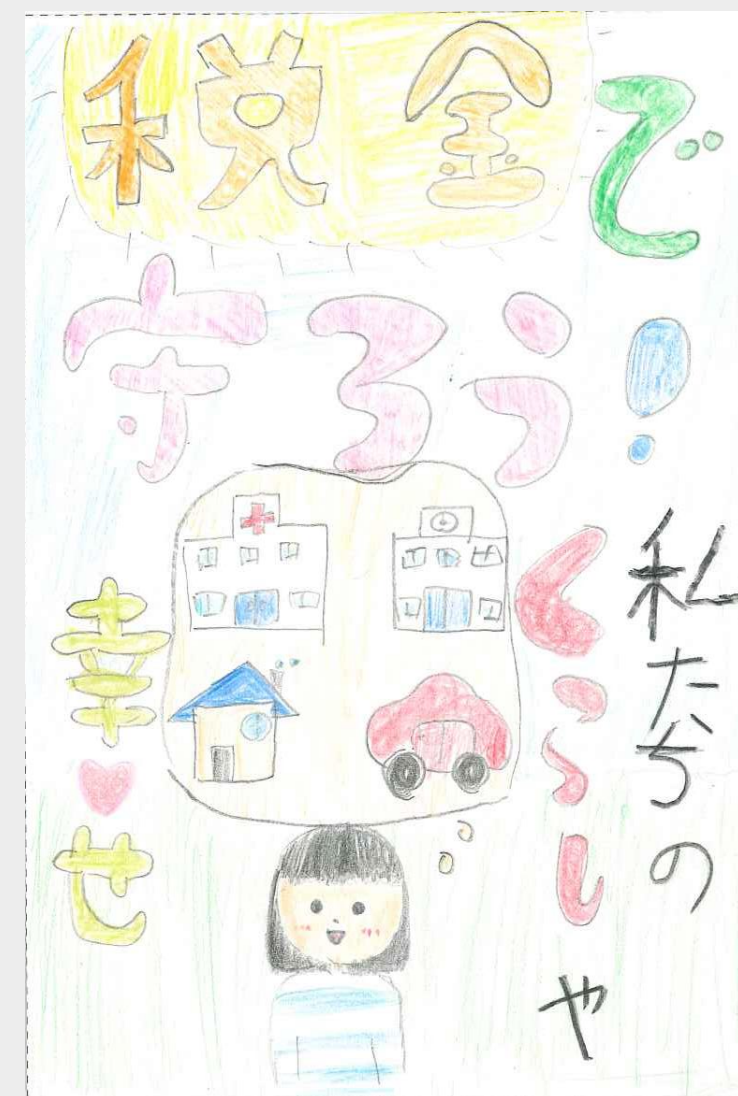 税金で
守ろう！
私たちの
くらしや
幸せ